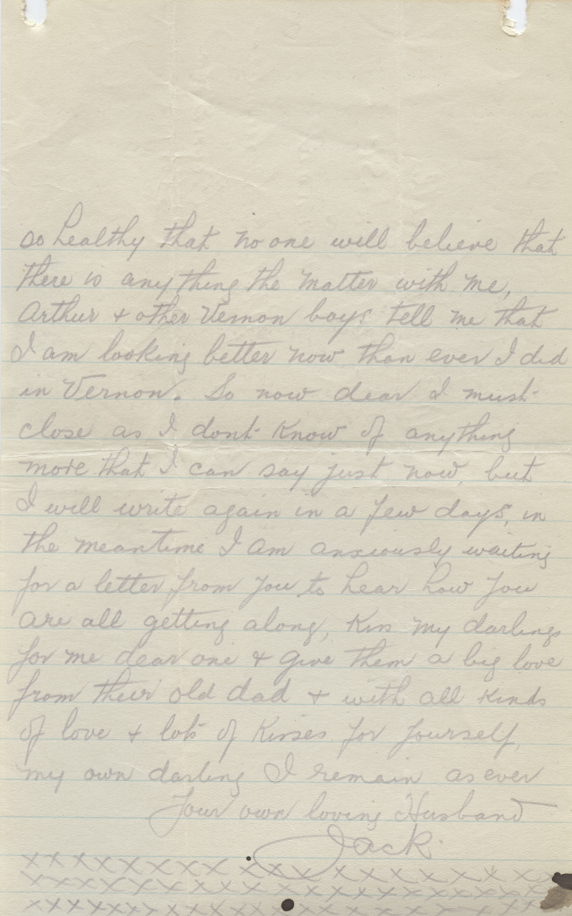 so healthy that no one will believe that
there is anything the matter with me,
Arthur & other Vernon boys tell me that
I am looking better now than ever I did
in Vernon. So now dear I must
close as I dont know of anything
more that I can say just now, but
I will write again in a few days, in
the meantime I am anxiously waiting
for a letter from you to hear how you
are all getting along, Kiss my darlings
for me dear one & give them a big love
from their old dad & with all kinds
of love & lots of kisses for yourself,
my own darling I remain as ever
Your own loving Husband
Jack.
XXXXXXXXXXXXXXXXXXXXXX
XXXXXXXXXXXXXXXXXXXXXX
XXXXXXXXXXXXXXXXXXXXXX